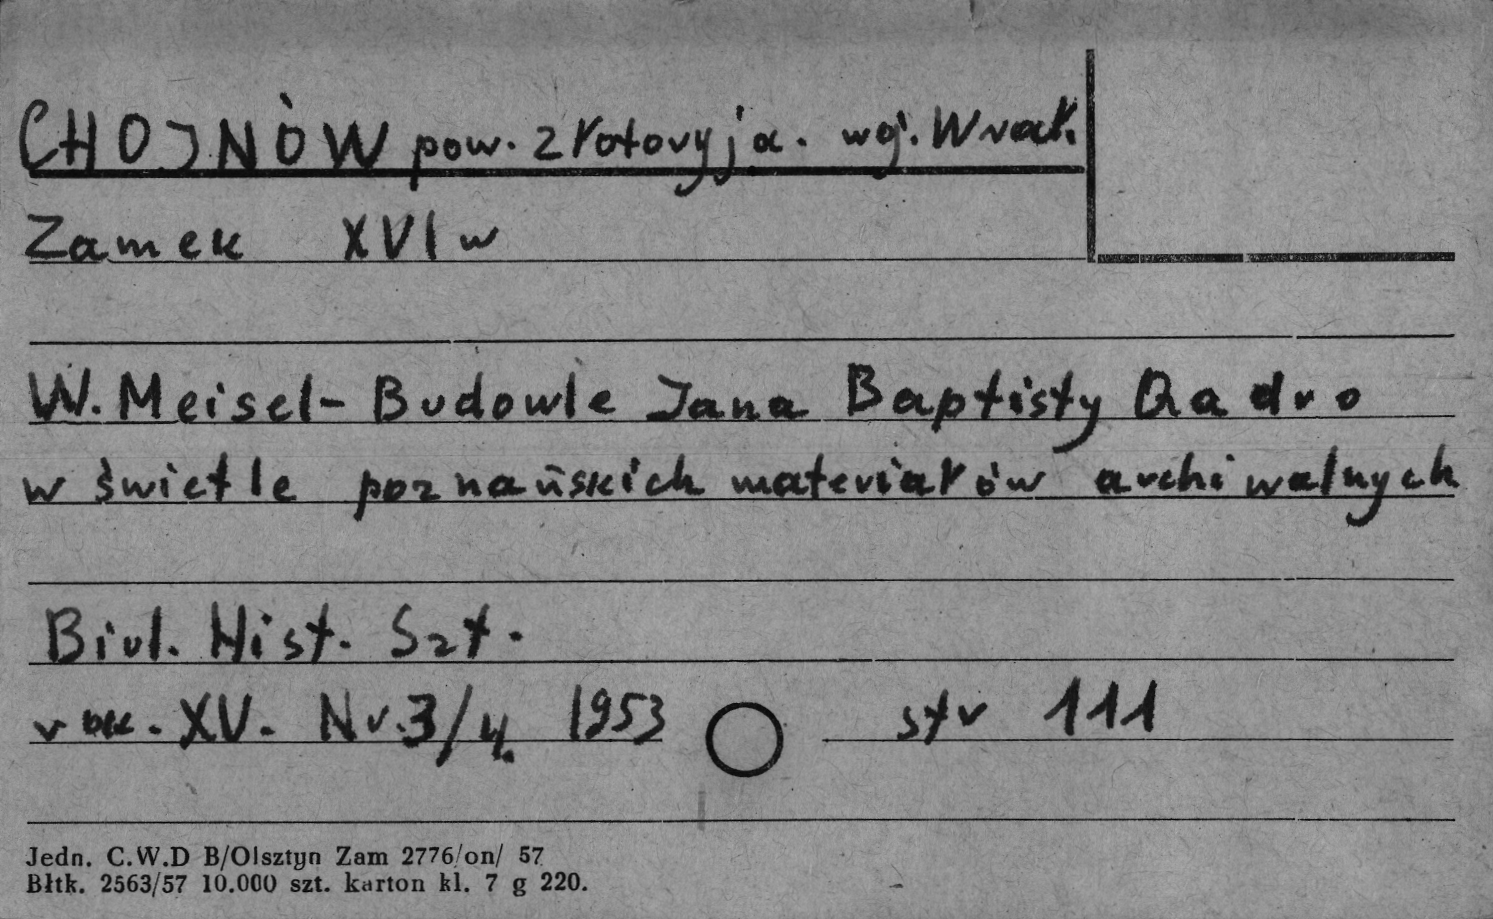 CHOJNÓW pow. złotoryja. woj. Wrocł.
Zamek XVI w
W. Meisel - Budowle Jana Baptisty Qadro
w świetle poznańskich materiałów archiwalnych
Biul. Hist. Szt.
rok. XV. Nr. 3/4. 1953 str 111
Jedn. C.W.D B/Olsztyn Zam 2776/on/ 57
Błtk. 2563/57 10.000 szt. karton kl. 7 g 220.